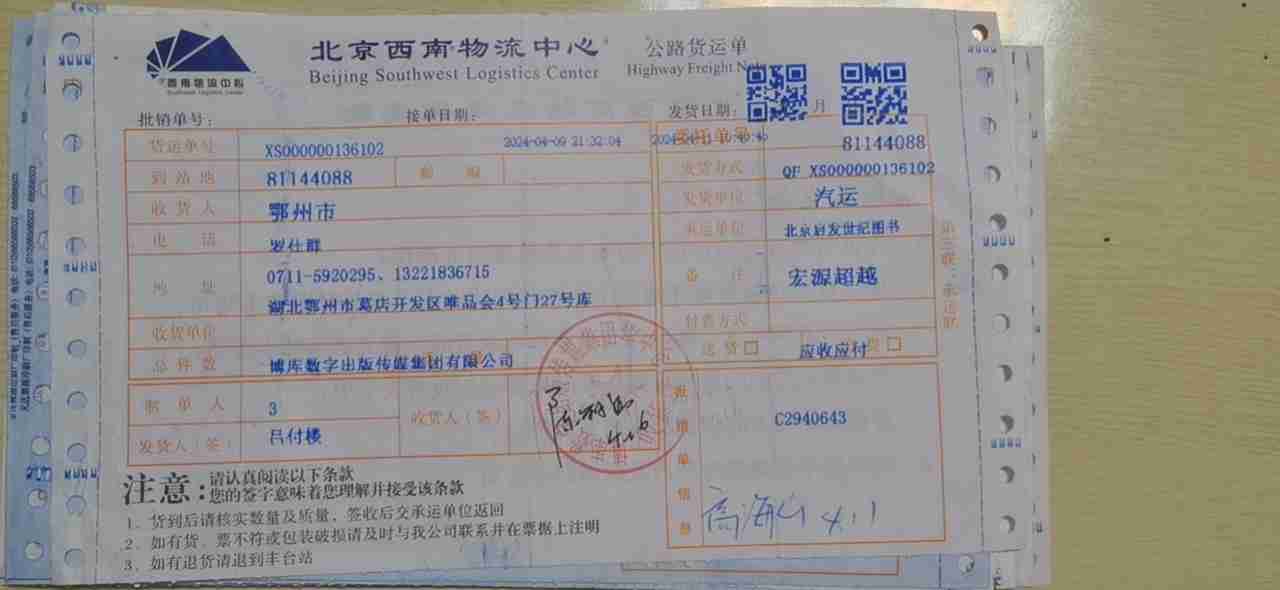 北京西南物流中心 公路货运单
Beijing Southwest Logistics Center Highway Freight Note
西南物流中心
Southwest Logistics Center
批销单号: 接单日期: 发货日期: 月
货运单号 XS000000136102 2024-04-09 21:32:04
81144088
到站地 81144088 邮编
发货方式 QF_XS000000136102
收货人 鄂州市
发货单位 汽运
电话 罗仕群
承运单位 北京启发世纪图书
地址 0711-5920295、13221836715
湖北鄂州市葛店开发区唯品会4号门27号库
备注 宏源超越
收货单位
付费方式
总件数 博库数字出版传媒集团有限公司
送货□ 应收应付 提□
制单人 3 收货人(签)
发货人(签) 吕付楼
4.16
批销单信息 C2940643
高海山 4.11
第三联:承运联
注意: 请认真阅读以下条款
您的签字意味着您理解并接受该条款
1、货到后请核实数量及质量,签收后交承运单位返回
2、如有货、票不符或包装破损请及时与我公司联系并在票据上注明
3、如有退货请退到丰台站